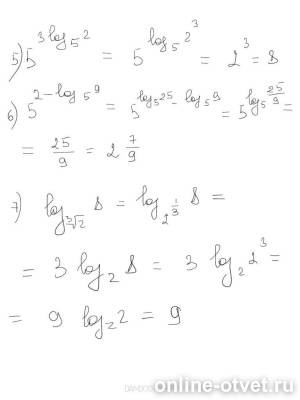 5) 5^{3 log_5 2} = 5^{log_5 2^3} = 2^3 = 8
6) 5^{2 - log_5 9} = 5^{log_5 25 - log_5 9} = 5^{log_5 \frac{25}{9}} =
= \frac{25}{9} = 2 \frac{7}{9}
7) log_{\sqrt[3]{2}} 8 = log_{2^{\frac{1}{3}}} 8 =
= 3 log_2 8 = 3 log_2 2^3 =
= 9 log_2 2 = 9
online-otvet.ru